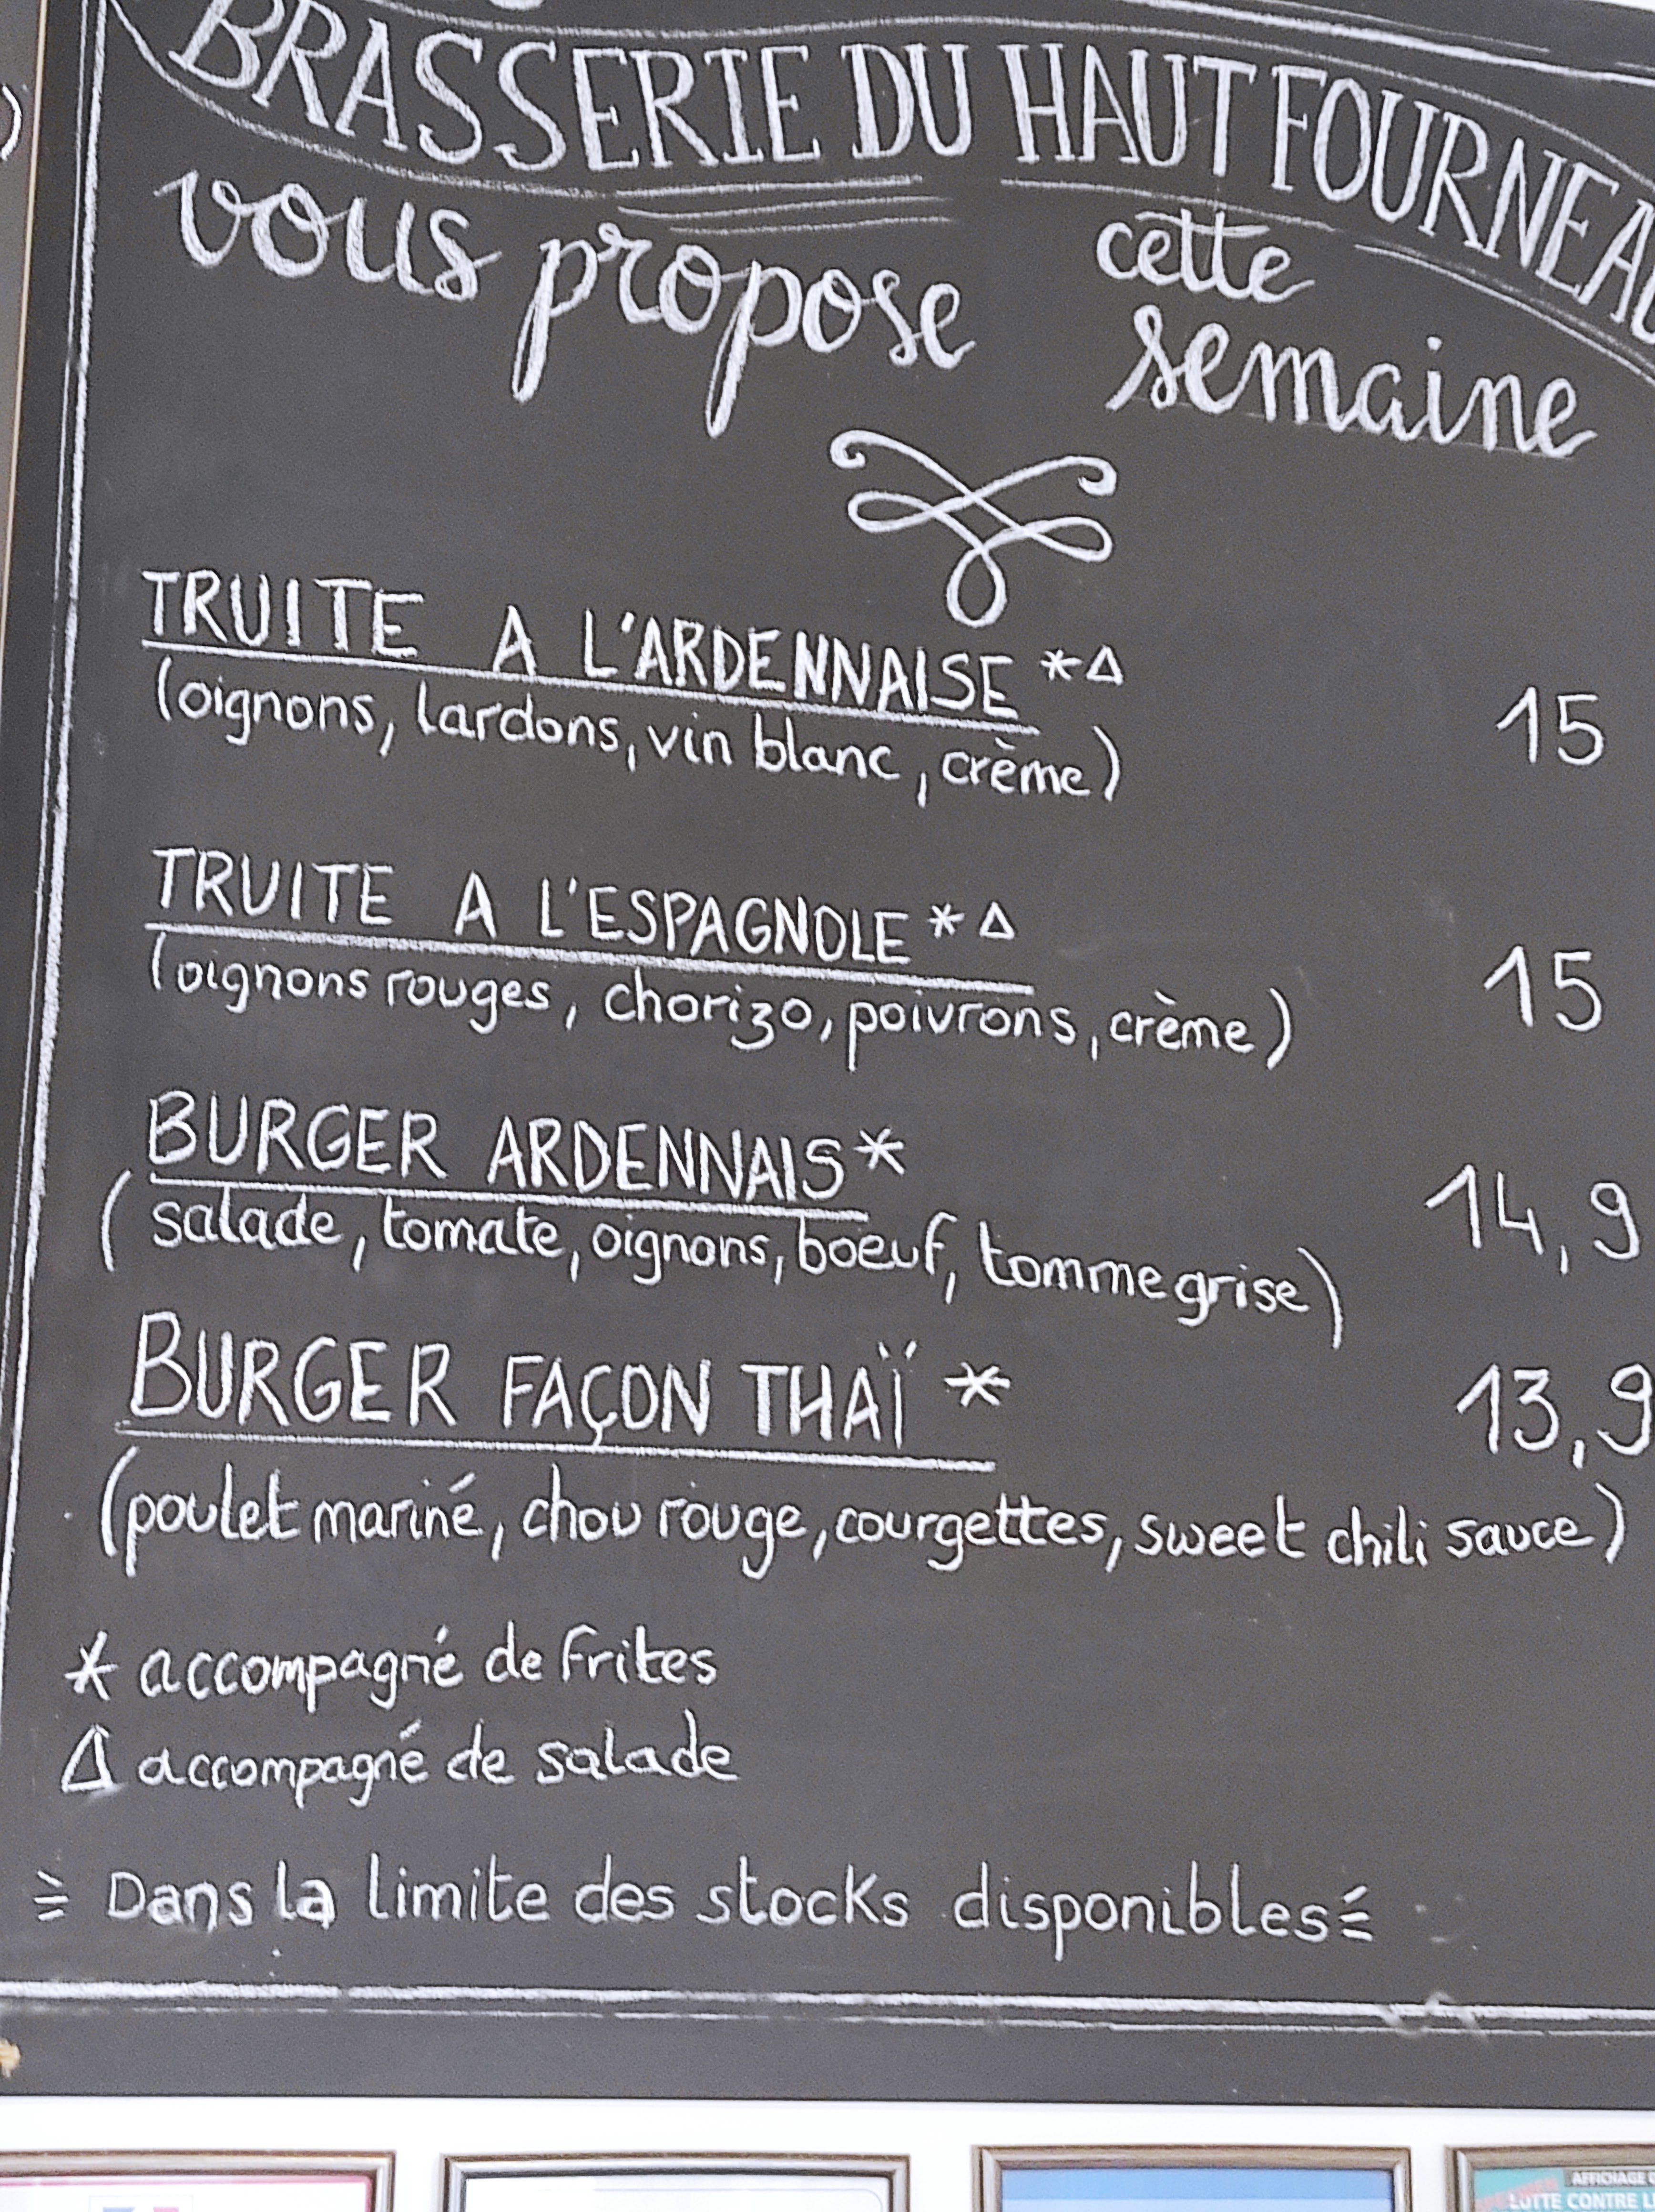 BRASSERIE DU HAUT FOURNEAU
vous propose cette semaine
TRUITE A L'ARDENNAISE *Δ 15
(oignons, lardons, vin blanc, crème)
TRUITE A L'ESPAGNOLE *Δ 15
(oignons rouges, chorizo, poivrons, crème)
BURGER ARDENNAIS* 14,9
(salade, tomate, oignons, boeuf, tomme grise)
BURGER FAÇON THAÏ * 13,9
(poulet mariné, chou rouge, courgettes, sweet chili sauce)
* accompagné de frites
Δ accompagné de salade
Dans la limite des stocks disponibles
AFFICHAGE
LUTTE CONTRE